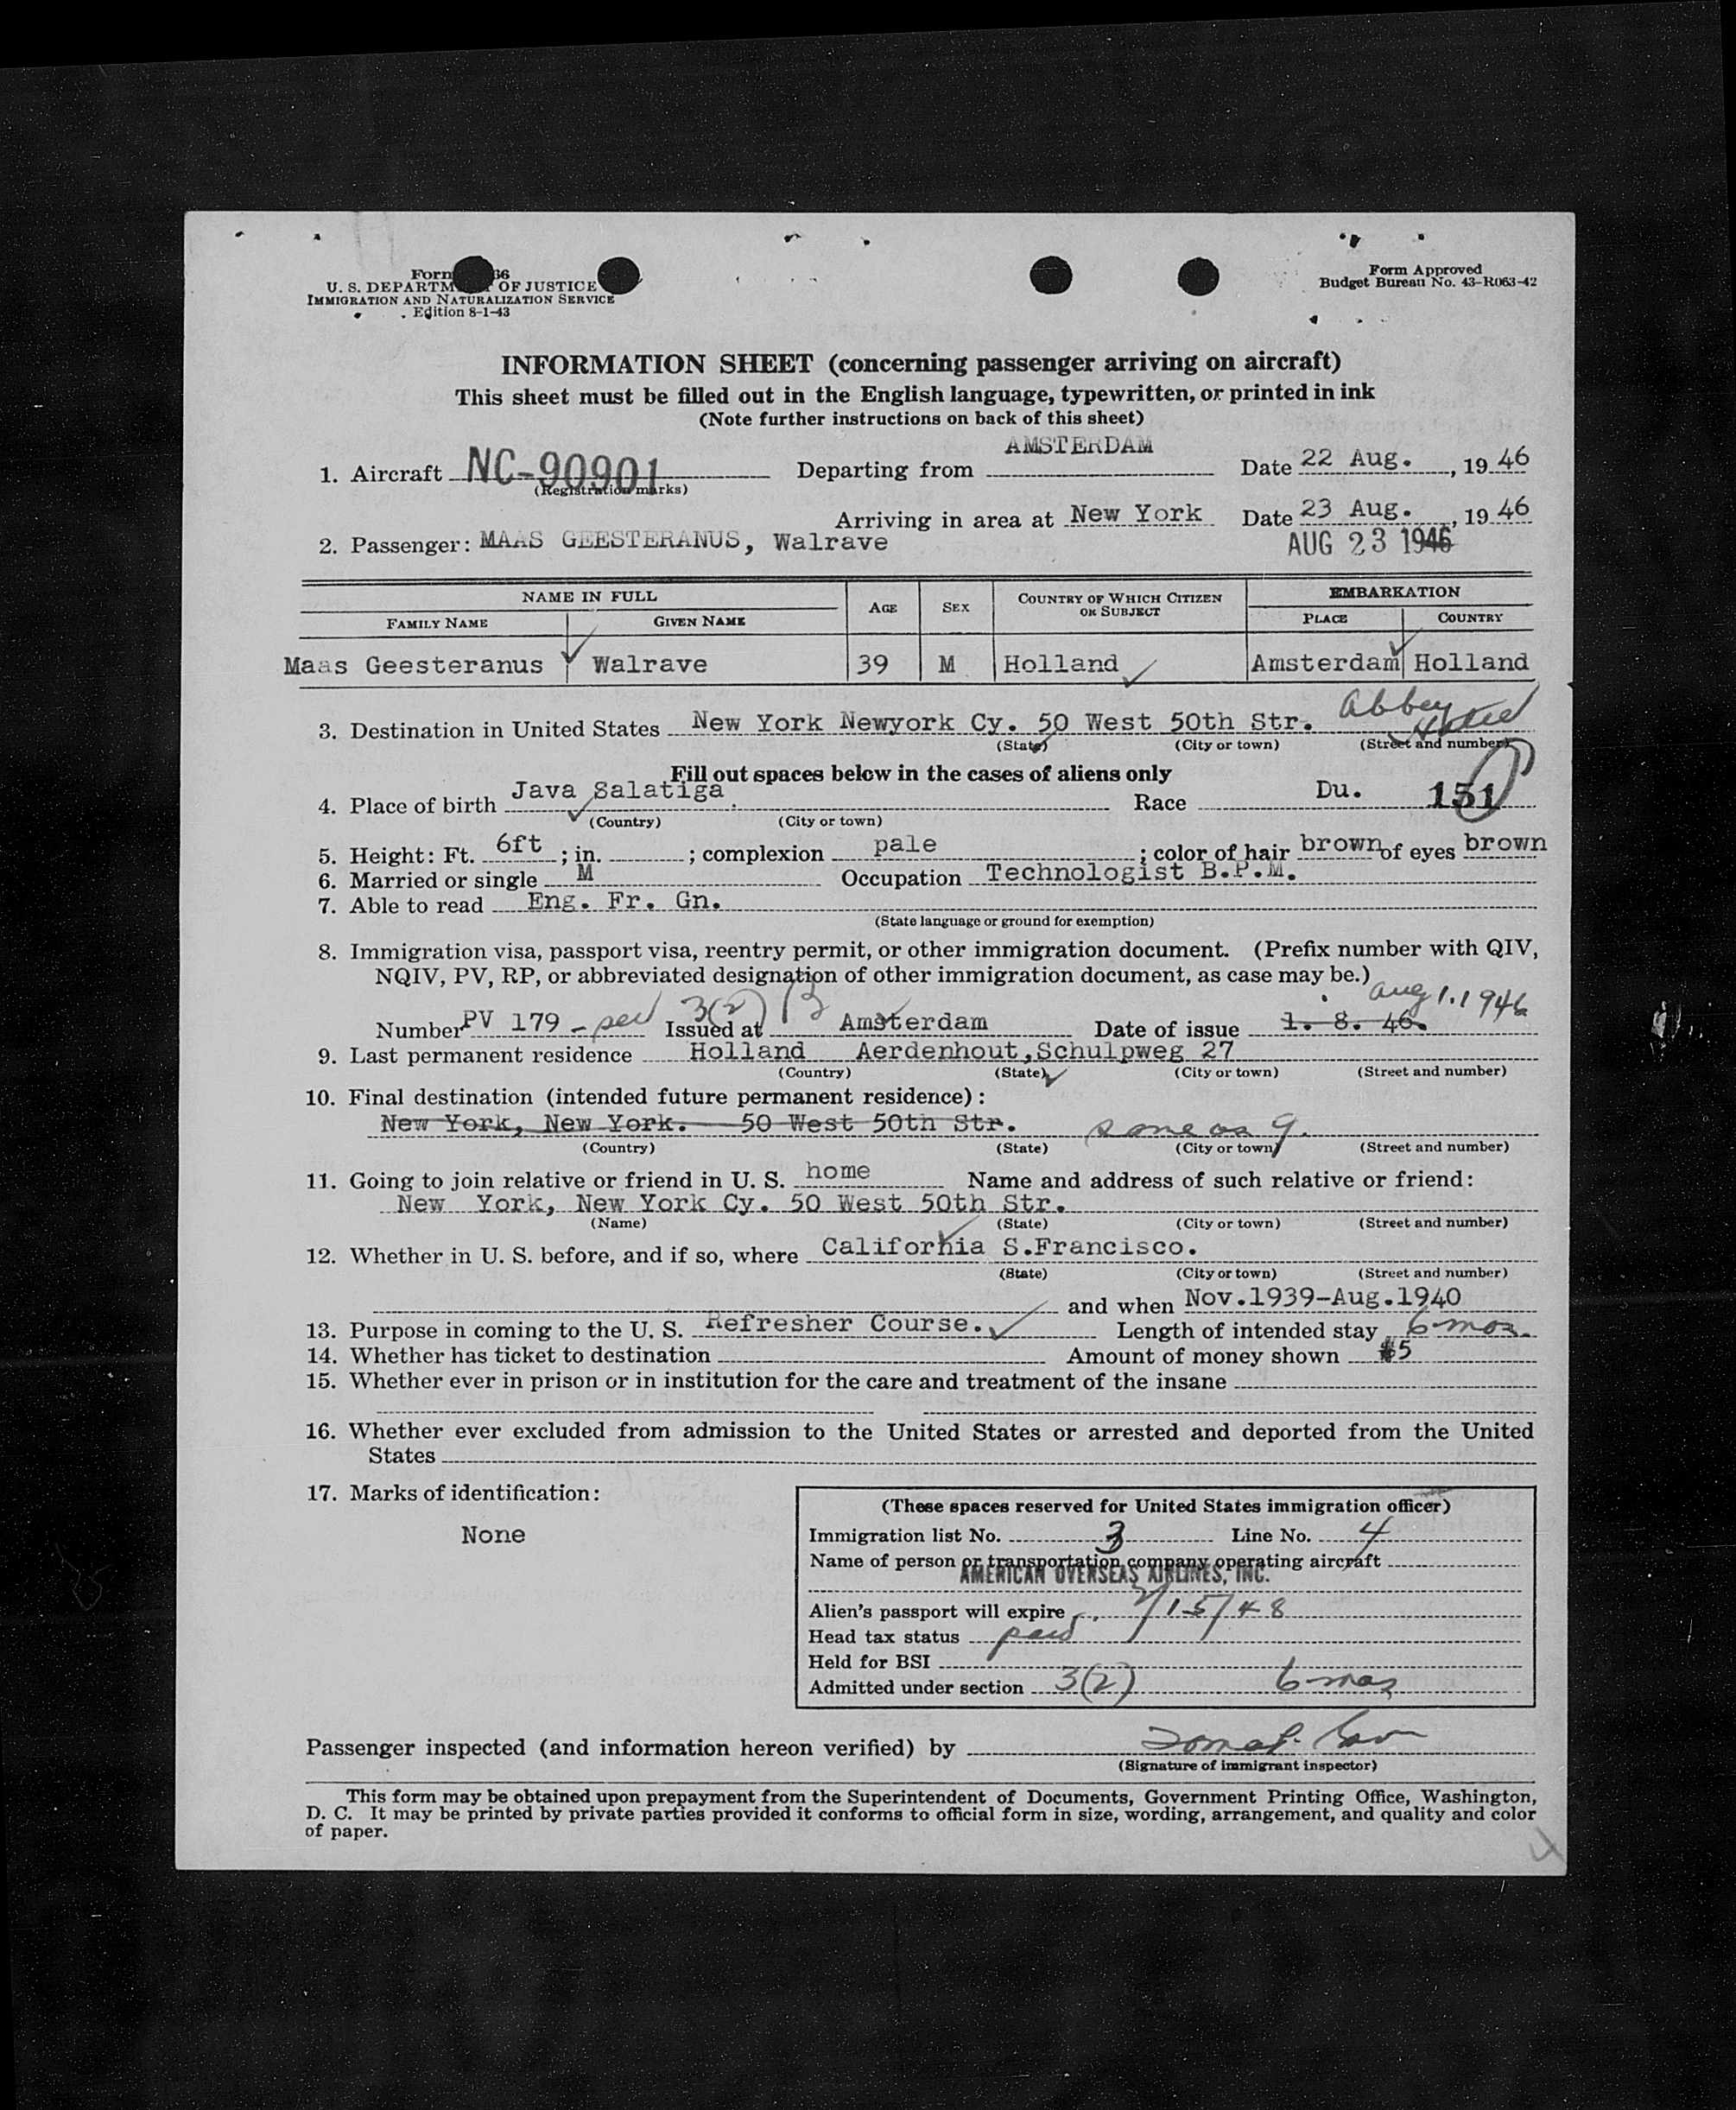 Form 66
U. S. DEPARTM OF JUSTICE
IMMIGRATION AND NATURALIZATION SERVICE
Edition 8-1-43
Form Approved
Budget Bureau No. 43-R063-42
INFORMATION SHEET (concerning passenger arriving on aircraft)
This sheet must be filled out in the English language, typewritten, or printed in ink
(Note further instructions on back of this sheet)
1. Aircraft NC-90901 Departing from AMSTERDAM Date 22 Aug. , 19 46
(Registration marks)
Arriving in area at New York Date 23 Aug. , 19 46
2. Passenger: MAAS GEESTERANUS, Walrave AUG 23 1946
NAME IN FULL AGE SEX COUNTRY OF WHICH CITIZEN OR SUBJECT EMBARKATION
FAMILY NAME GIVEN NAME PLACE COUNTRY
Maas Geesteranus Walrave 39 M Holland Amsterdam Holland
3. Destination in United States New York Newyork Cy. 50 West 50th Str. Abbey Hotel
(State) (City or town) (Street and number)
Fill out spaces below in the cases of aliens only
4. Place of birth Java Salatiga. Race Du. 151
(Country) (City or town)
5. Height: Ft. 6ft ; in. ; complexion pale ; color of hair brown of eyes brown
6. Married or single M Occupation Technologist B.P.M.
7. Able to read Eng. Fr. Gn.
(State language or ground for exemption)
8. Immigration visa, passport visa, reentry permit, or other immigration document. (Prefix number with QIV,
NQIV, PV, RP, or abbreviated designation of other immigration document, as case may be.)
Aug 1. 1946
Number PV 179 - sec 3(2) Issued at Amsterdam Date of issue 1. 8. 46.
9. Last permanent residence Holland Aerdenhout, Schulpweg 27
(Country) (State) (City or town) (Street and number)
10. Final destination (intended future permanent residence):
New York, New York. 50 West 50th Str. same as 9.
(Country) (State) (City or town) (Street and number)
11. Going to join relative or friend in U. S. home Name and address of such relative or friend:
New York, New York Cy. 50 West 50th Str.
(Name) (State) (City or town) (Street and number)
12. Whether in U. S. before, and if so, where California S.Francisco.
(State) (City or town) (Street and number)
and when Nov.1939-Aug.1940
13. Purpose in coming to the U. S. Refresher Course. Length of intended stay 6 mos.
14. Whether has ticket to destination Amount of money shown $5
15. Whether ever in prison or in institution for the care and treatment of the insane
16. Whether ever excluded from admission to the United States or arrested and deported from the United
States
17. Marks of identification:
None
(These spaces reserved for United States immigration officer)
Immigration list No. 3 Line No. 4
Name of person or transportation company operating aircraft
AMERICAN OVERSEAS AIRLINES, INC.
Alien's passport will expire /15/48
Head tax status paid
Held for BSI
Admitted under section 3(2) 6 mos
Passenger inspected (and information hereon verified) by
(Signature of immigrant inspector)
This form may be obtained upon prepayment from the Superintendent of Documents, Government Printing Office, Washington,
D. C. It may be printed by private parties provided it conforms to official form in size, wording, arrangement, and quality and color
of paper.